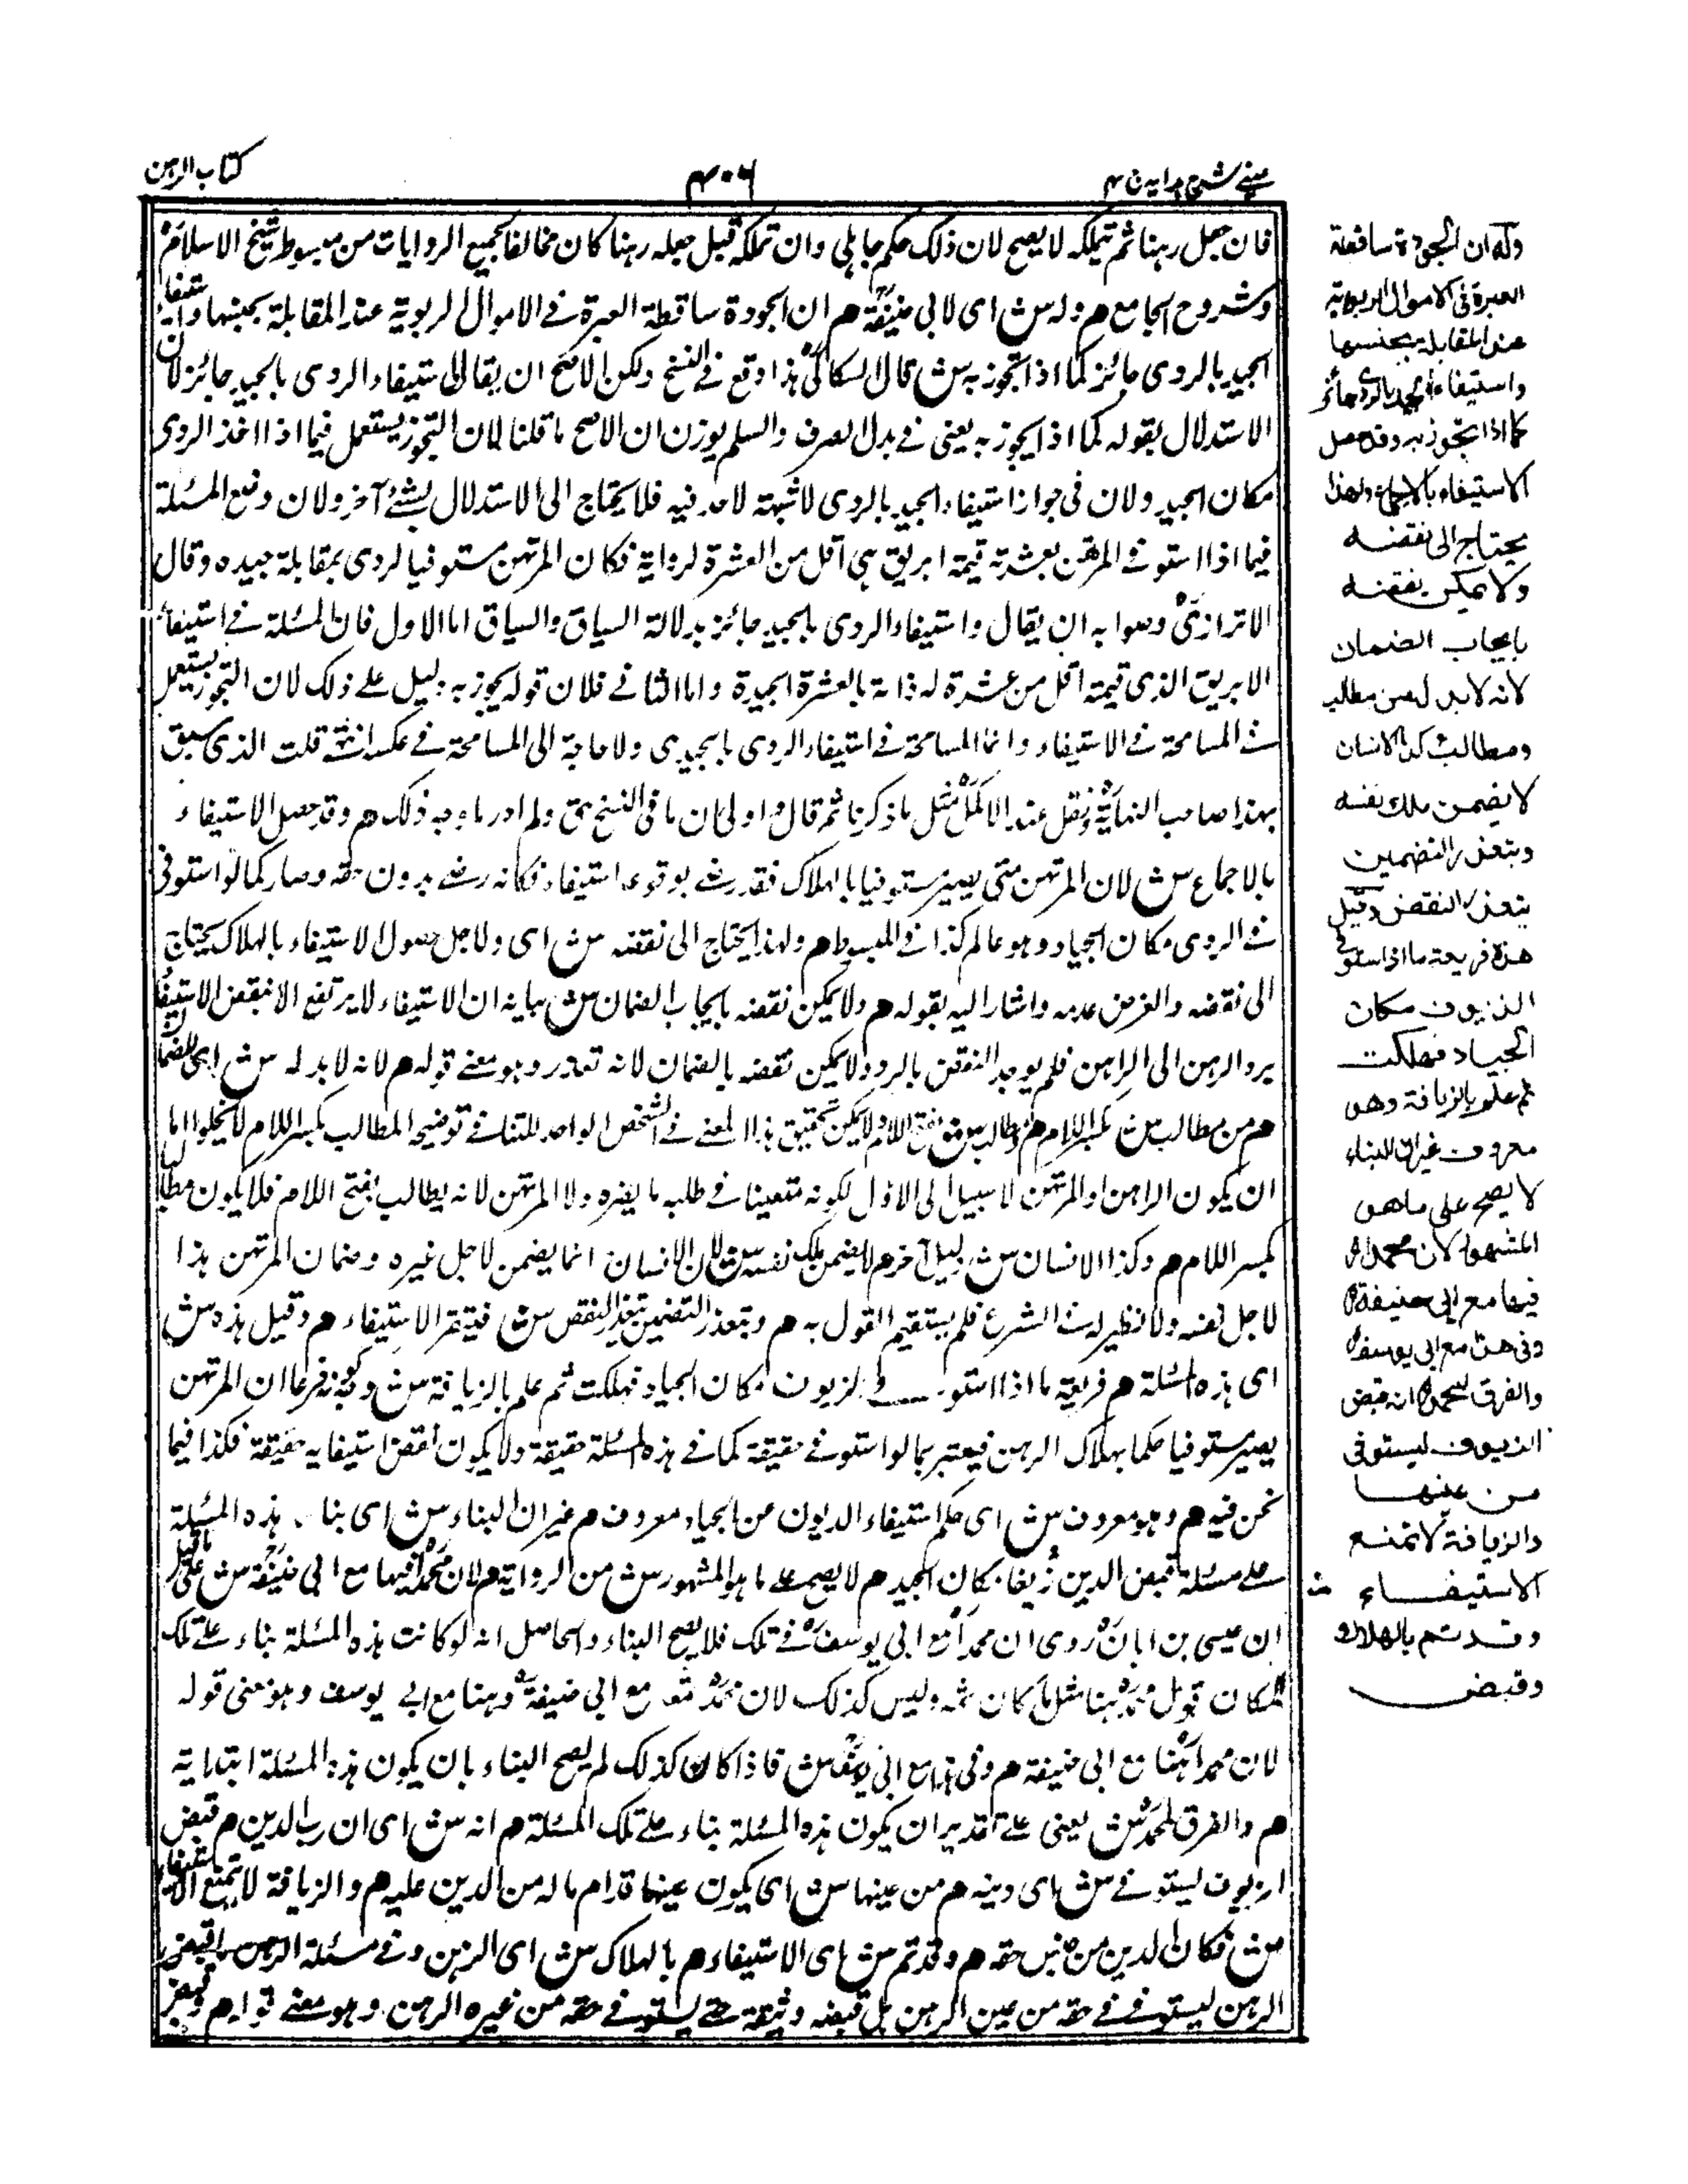 عينے شرح ہدایہ ن ۴
۴۰۶
كتاب الرہن
فان جعل رہنا ثم تيملكہ لا يصح لان ذلك حكم جاہلي وان تملكہ قبل جعلہ رہنا كان مخالفا لجميع الروايات من مبسوط شيخ الاسلام
وشروح الجامع هم ولہ ش اى لابي حنيفۃ هم ان الجودة ساقطۃ العبرة فے الاموال الربويۃ عند المقابلۃ بجنسها واستيفاء
الجيد بالردى جائز كما اذا تجوز بہ ش قال السكاكى ہذا وقع فے النسخ ولكن الاصح ان يقال استيفاء الردى بالجيد جائز لان
الاستدلال بقولہ كما اذا تجوز بہ يعنى فے بدل الصرف والسلم يوزن ان الاصح ما قلنا لان التجوز يستعمل فيما اذا اخذ الردى
مكان الجيد ولان فى جواز استيفاء الجيد بالردى لا شبهۃ لاحد فيہ فلا يحتاج الى الاستدلال بشئے آخر ولان وضع المسئلۃ
فيما اذا استوفے المرتهن بعشرة قيمۃ ابريق ہى اقل من العشرة لرواية فكان المرتهن مستوفيا لردى بمقابلۃ جيدہ وقال
الاترازى وصوابہ ان يقال واستيفاء الردى بالجيد جائز بدلالۃ السياق والسياق اما الاول فان المسئلۃ فے استيفاء
الابريق الذى قيمتہ اقل من عشرة لہ ذا تۃ بالعشرة الجيدة واما الثانے فلان قولہ يجوز بہ دليل علے ذلك لان التجوز يستعمل
فے المسامحۃ فے الاستيفاء وانما المسامحۃ فے استيفاء الردى بالجيدى ولا حاجۃ الى المسامحۃ فے عكسہ انتہے قلت الذى سبق
بہذا صاحب النہايۃ ونقل عنہ الاكمل مثل ما ذكرنا ثم قال واولى ان ما فى النسخ حق ولم ادر ما وجہ ذلك هم وقد حصل الاستيفاء
بالاجماع ش لان المرتهن متى يصير مستوفيا بالہلاك فقد رضے بوقوعہ استيفاء فكانہ رضے بدون حقہ وصار كما لو استوفى
فے الردى مكان الجياد وہو عالم كذا فے المبسوط هم ولہذا يحتاج الى نقضہ ش اى ولاجل حصول الاستيفاء بالہلاك يحتاج
الى نقضہ والغرض عدمہ واشار اليہ بقولہ هم ولا يمكن نقضہ بايجاب الضمان ش بيانہ ان الاستيفاء لا يرتفع الا بنقض الاستيفاء
يرد الرہن الى الراہن فلم يوجد النقض بالرد ولا يمكن نقضہ بالضمان لانہ تعذر وہو معنے قولہ هم لانہ لا بد لہ ش اى للضمان
هم من مطالب ش بكسر اللام هم ومطالب ش بفتح اللام ولا يمكن تحقيق ہذا المعنے فے الشخص الواحد للتنافے توضيحہ المطالب بكسر اللام لا يخلوا اما
ان يكون الراہن او المرتهن لا سبيل الى الاول لكونہ متعينا فے طلبہ ما يضرہ ولا المرتهن لانہ يطالب بفتح اللام فلا يكون مطالبا
بكسر اللام هم وكذا الانسان ش دليل آخر هم لا يضمن ملك نفسہ ش لان الانسان انما يضمن لاجل غيرہ وضمان المرتهن ہذا
لاجل نفسہ ولا نظير لہ فے الشرع فلم يستقيم القول بہ هم وبتعذر التضمين يتعذر النقض ش فيتقرر الاستيفاء هم وقيل ہذہ ش
اى ہذہ المسئلۃ هم فريعۃ ما اذا استوفى الزيوف مكان الجياد فہلكت ثم علم بالزيافۃ ش وكونہ فرعا ان المرتهن
يصير مستوفيا حكما بہلاك الرہن فيعتبر بما لو استوفے حقيقۃ كما فے ہذہ المسئلۃ حقيقۃ ولا يكون نقض استيفايہ حقيقۃ فكذا فيما
نحن فيہ هم وہو معروف ش اى حكم استيفاء الديون عن الجياد معروف هم غير ان البناء ش اى بناء ہذہ المسئلۃ
علے مسئلۃ قبض الدين زيفا مكان الجيد هم لا يصح علے ما ہو المشہور ش من الرواية هم لان محمدا فيہا مع ابى حنيفۃ ش على ما قيل
ان عيسى بن ابان روى ان محمدا مع ابى يوسف فے تلك فلا يصح البناء والحاصل انہ لو كانت ہذہ المسئلۃ بناء علے تلك
لكان قول محمد ہہنا مثل ما كان ثمہ وليس كذلك لان محمدا ثمہ مع ابى حنيفۃ وہہنا مع ابے يوسف وہو معنى قولہ
لان محمدا ہہنا مع ابى حنيفۃ هم وفى ہذا مع ابى يوسف ش فاذا كان كذلك لم يصح البناء بان يكون ہذہ المسئلۃ ابتدايۃ
هم والفرق لمحمد ش يعنى علے تقدير ان يكون ہذہ المسئلۃ بناء علے تلك المسئلۃ هم انہ ش اى ان رب الدين هم قبض
الزيوف ليستوفے ش اى دينہ هم من عينہا ش اى يكون عينہا قدام مالہ من الدين عليہ هم والزيافۃ لا تمنع الاستيفاء
ش فكان الدين من جنس حقہ هم وقد تم ش اى الاستيفاء هم بالہلاك ش اى الرہن وفے مسئلۃ الرہن ما قبض
الرہن ليستوفے حقہ من عين الرہن بل قبضہ وثيقۃ حتے يستوفے حقہ من غيرہ الرہن وہو معنے قولہ هم وقبض
ولہ ان الجودة ساقطة
العبرة فى الاموال الربوية
عند المقابلة بجنسها
واستيفاء الجيد بالردى جائز
كما اذا تجوز به وقد حصل
الاستيفاء بالاجماع ولهذا
يحتاج الى نقضه
ولا يمكن نقضه
بايجاب الضمان
لانه لا بد له من مطالب
ومطالب كذا الانسان
لا يضمن ملك نفسه
وبتعذر التضمين
يتعذر النقض وقيل
هذه فريعة ما اذا استوفى
الزيوف مكان
الجياد فهلكت
ثم علم بالزيافة وهو
معروف غير ان البناء
لا يصح على ما هو
المشهور لان محمدا
فيها مع ابى حنيفة
وفى هذا مع ابى يوسف
والفرق لمحمد انه قبض
الزيوف ليستوفى
من عينها
والزيافة لا تمنع
الاستيفاء
وقد تم بالهلاك
وقبض